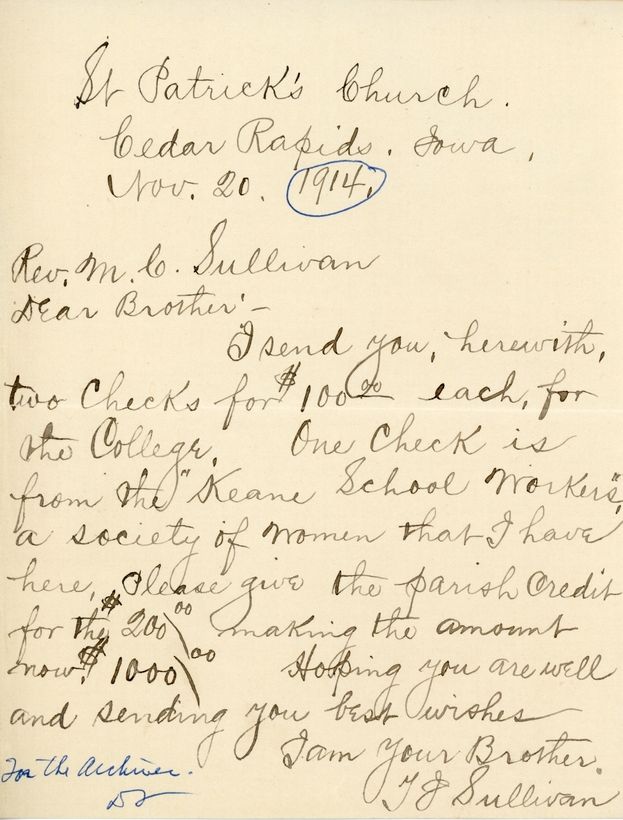 St Patrick's Church.
Cedar Rapids. Iowa,
Nov. 20. 1914.
Rev. M. C. Sullivan
Dear Brother:-
I send you, herewith,
two Checks for $100 00 each, for
the College. One Check is
from the "Keane School Workers",
a society of Women that I have
here, Please give the parish Credit
for the $200 00 making the amount
now. $1000 00 Hoping you are well
and sending you best wishes
I am Your Brother.
T J Sullivan
For the Archives.